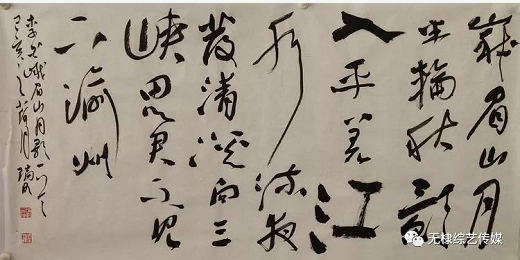 峩眉山月
半輪秋影
入平羌江
水流夜
發清溪向三
峽思君不見
下渝州
李白峨眉山月歌
己亥之荷月瑞民
无棣综艺传媒